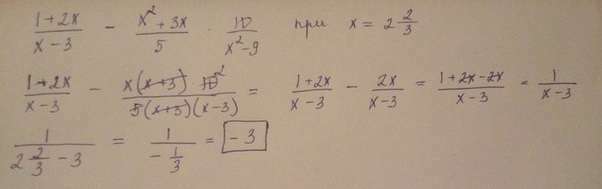 (1+2x)/(x-3) - (x²+3x)/5 · 10/(x²-9) при x = 2 2/3
(1+2x)/(x-3) - (x(x+3) 10²)/(5(x+3)(x-3)) = (1+2x)/(x-3) - 2x/(x-3) = (1+2x-2x)/(x-3) = 1/(x-3)
1/(2 2/3 - 3) = 1/(- 1/3) = -3